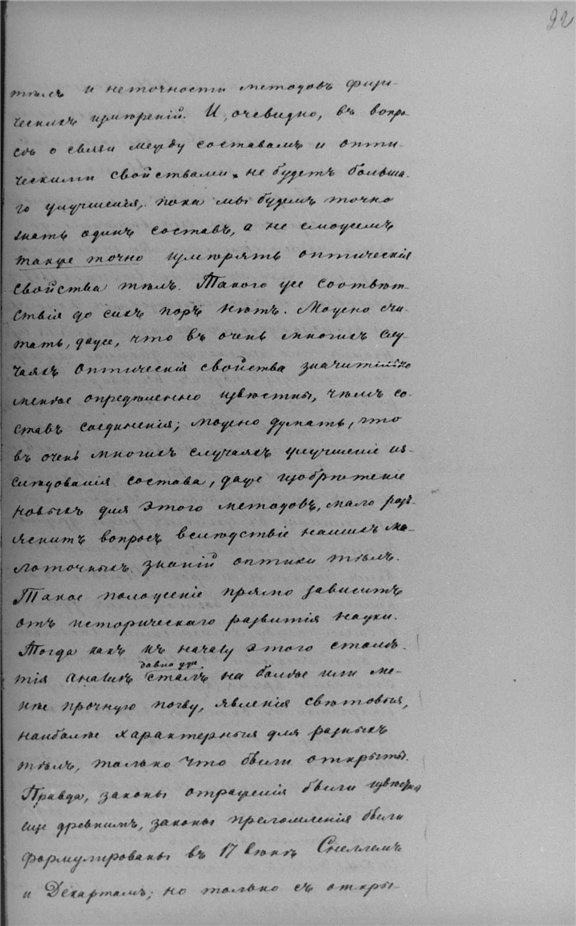 22
тѣлъ и неточности методовъ физи-
ческихъ измѣреній. И, очевидно, въ вопро-
сѣ о связи между составомъ и опти-
ческими свойствами не будетъ больша-
го улучшенія, пока мы будемъ точно
знать одинъ составъ, а не сможемъ
также точно измѣрять оптическія
свойства тѣлъ. Такого же соотвѣт-
ствія до сихъ поръ нѣтъ. Можно счи-
тать, даже, что въ очень многихъ слу-
чаяхъ оптическія свойства значительно
менѣе опредѣленно извѣстны, чѣмъ со-
ставъ соединенія; можно думать, что
въ очень многихъ случаяхъ улучшеніе из-
слѣдованія состава, даже изобрѣтеніе
новыхъ для этого методовъ, мало разъ-
яснитъ вопросъ вслѣдствіе нашихъ ма-
лоточныхъ знаній оптики тѣлъ.
Такое положеніе прямо зависитъ
отъ историческаго развитія науки.
Тогда какъ къ началу этого столѣ-
давно уже
тія анализъ сталъ на болѣе или ме-
нѣе прочную почву, явленія свѣтовыя,
наиболѣе характерныя для разныхъ
тѣлъ, только что были открыты.
Правда, законы отраженія были извѣстны
еще древнимъ, законы преломленія были
формулированы въ 17 вѣкѣ Снеллемъ
и Декартомъ; но только съ откры-